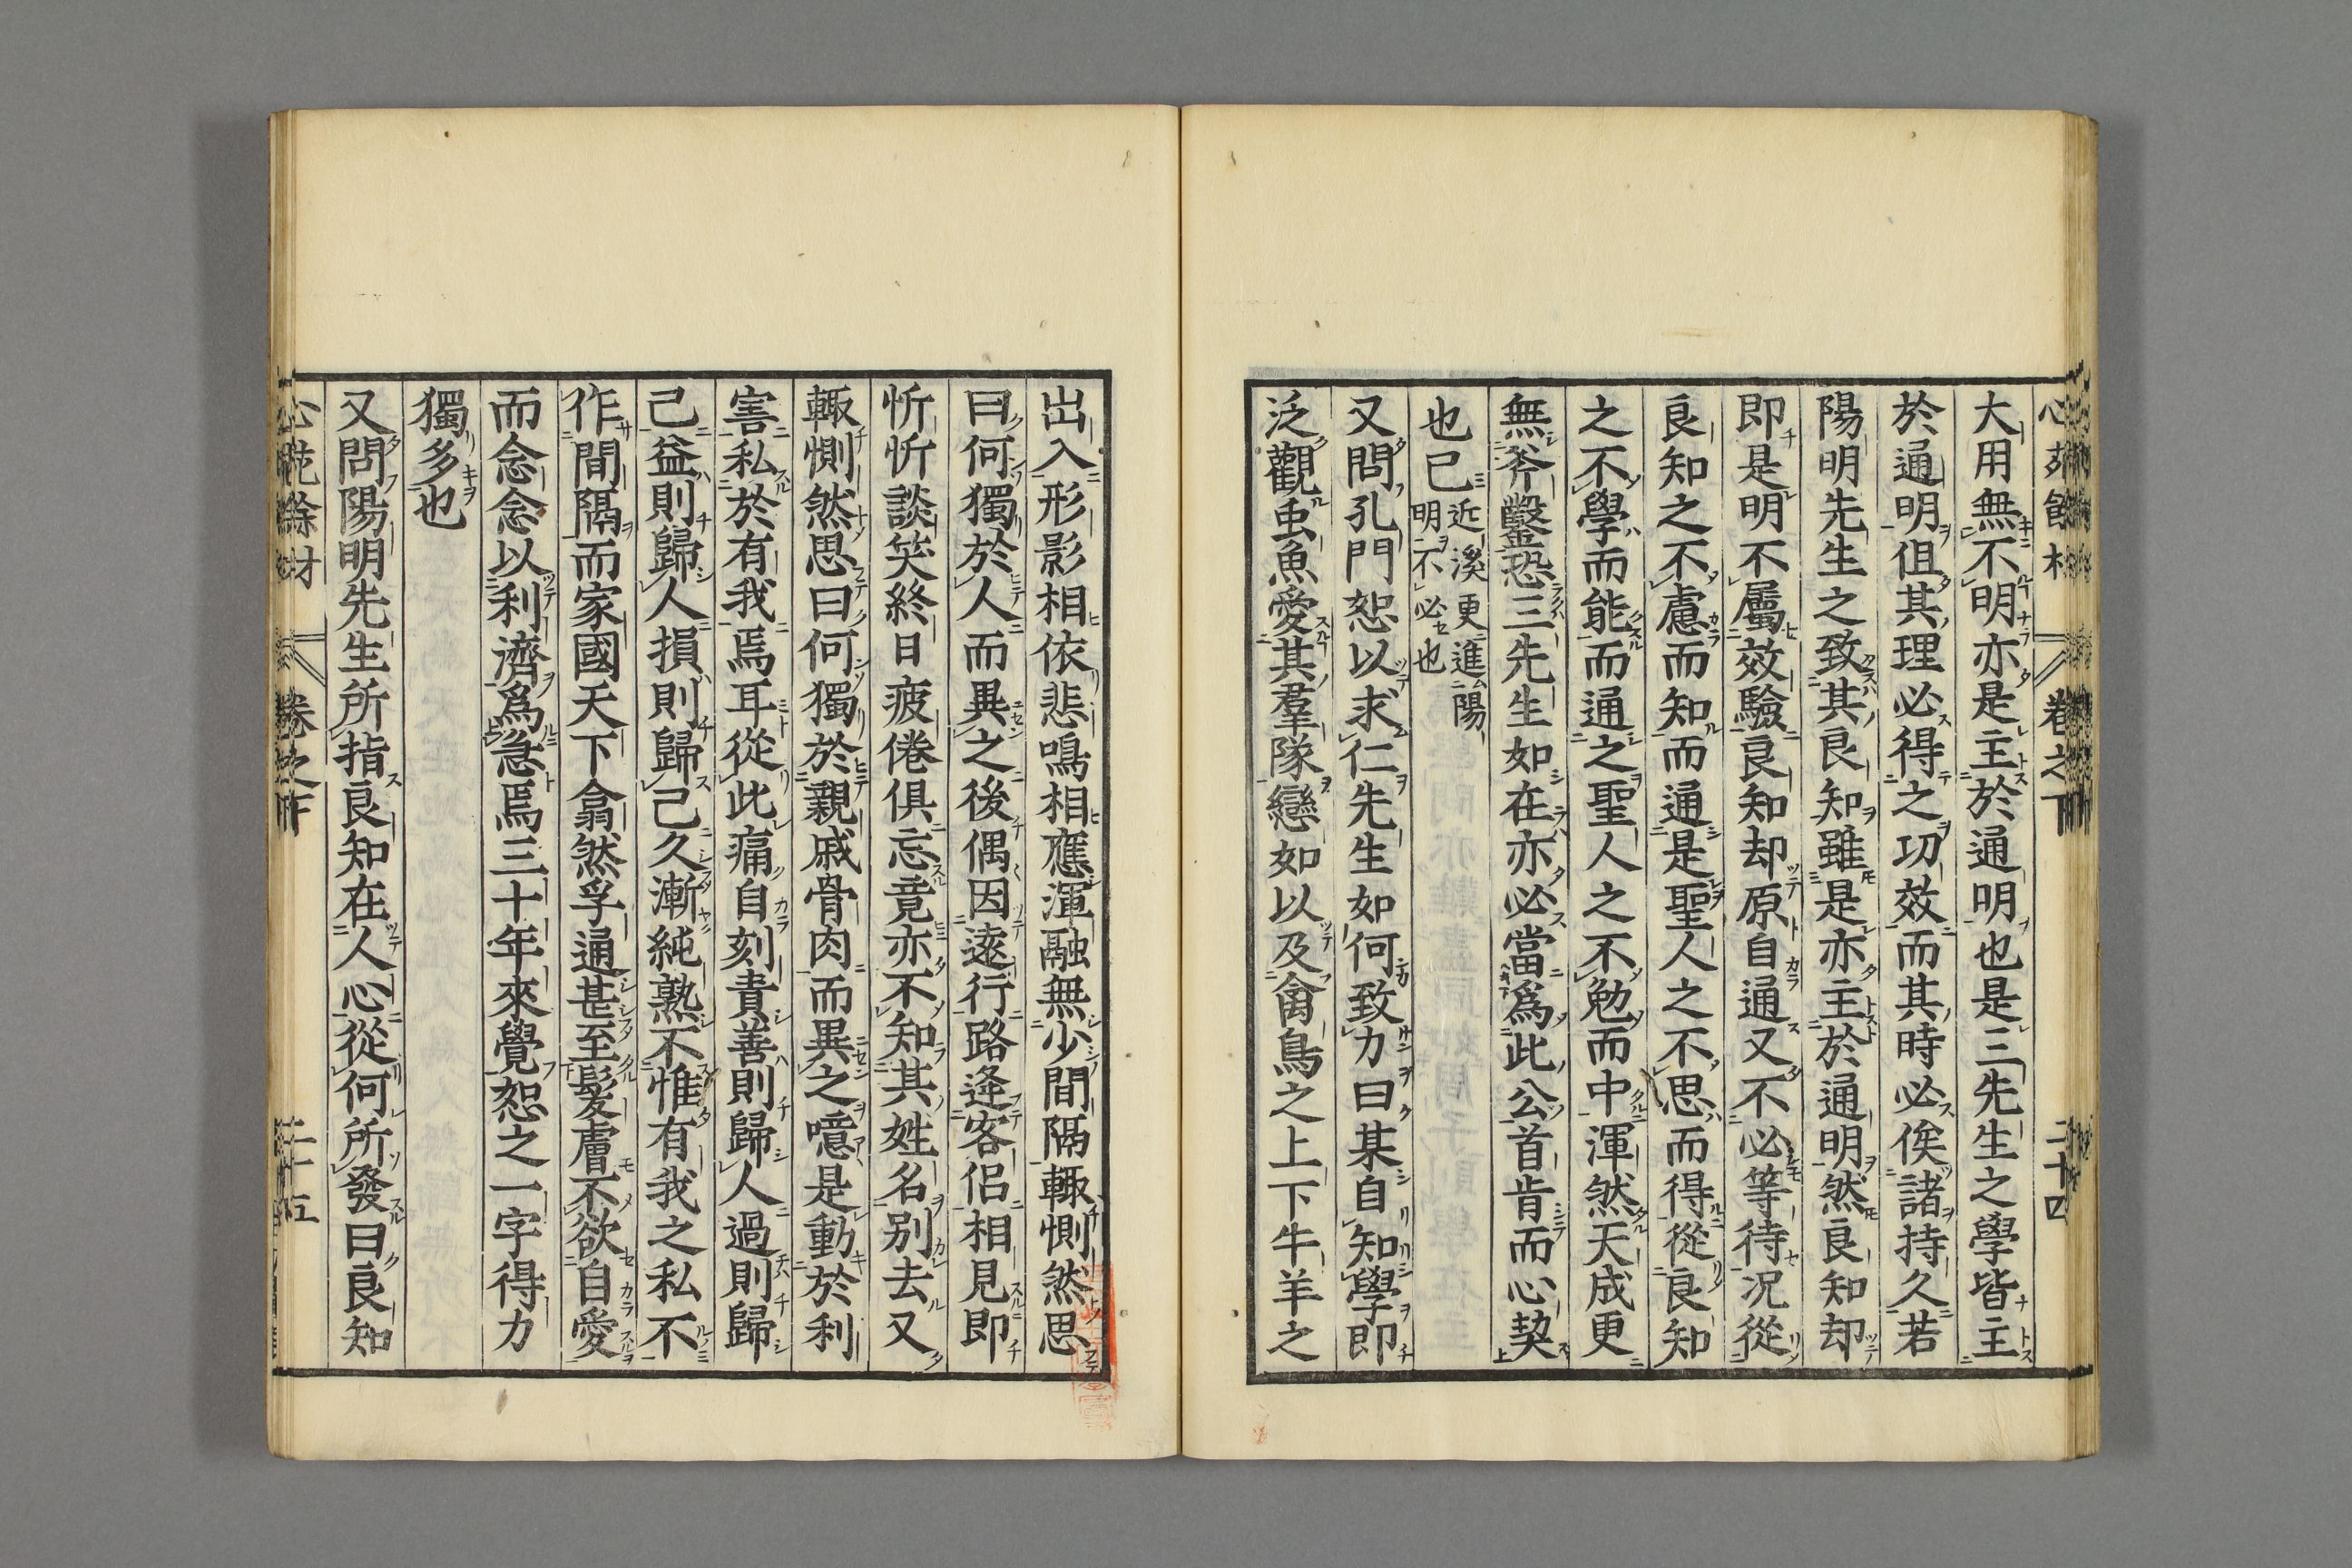 大用無不明亦是主於通明也是三先生之學皆主
於通明但其理必得之功效而其時必俟諸持久若
陽明先生之致其良知雖是亦主於通明然良知却
即是明不屬效驗良知却原自通又不必等待况從
良知之不慮而知而通是聖人之不思而得從良知
之不學而能而通之聖人之不勉而中渾然天成更
無斧鑿恐三先生如在亦必當爲此公首肯而心契
也已
近溪更進陽
明不必也
又問孔門恕以求仁先生如何致力曰某自知學即
泛觀虫魚愛其羣隊戀如以及禽鳥之上下牛羊之
出入形影相依悲鳴相應渾融無少間隔輙惻然思
曰何獨於人而異之後偶因遠行路逢客侶相見即
忻忻談笑終日疲倦俱忘竟亦不知其姓名别去又
輙惻然思曰何獨於親戚骨肉而異之噫是動於利
害私於有我焉耳從此痛自刻責善則歸人過則歸
己益則歸人損則歸己久漸純熟不惟有我之私不
作間隔而家國天下翕然孚通甚至髪膚不欲自愛
而念念以利濟爲急焉三十年來覺恕之一字得力
獨多也
又問陽明先生所指良知在人心從何所發曰良知
卷之下